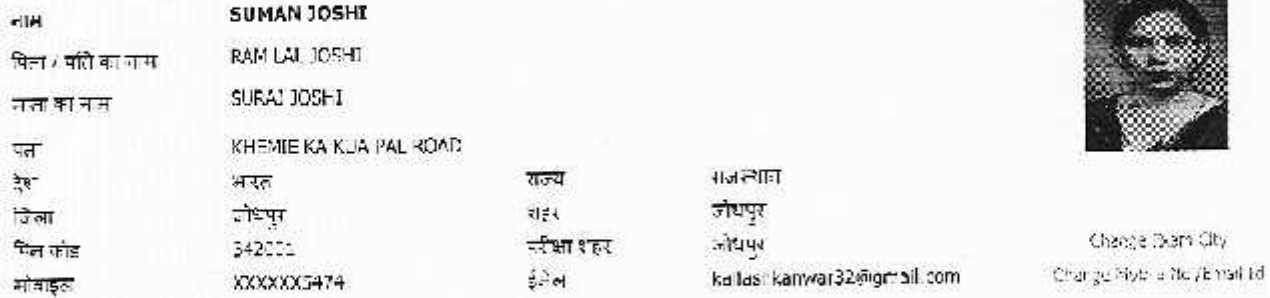 नाम SUMAN JOSHI
पिता / पति का नाम RAM LAL JOSHI
माता का नाम SURAJ JOSHI
पता KHEMIE KA KUA PAL ROAD
देश भारत राज्य राजस्थान
जिला जोधपुर शहर जोधपुर
पिन कोड परीक्षा शहर जोधपुर
मोबाइल XXXXXX5474 ईमेल
Change Exam City
Change Mobile No/Email Id